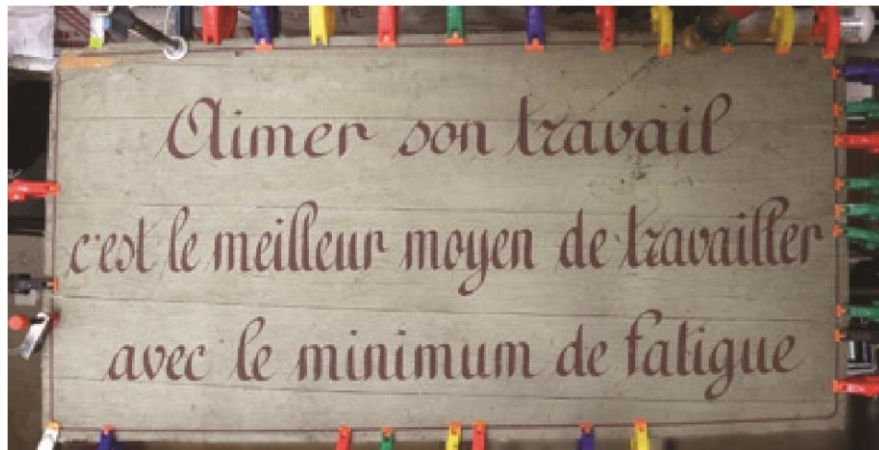 Aimer son travail
c'est le meilleur moyen de travailler
avec le minimum de fatigue